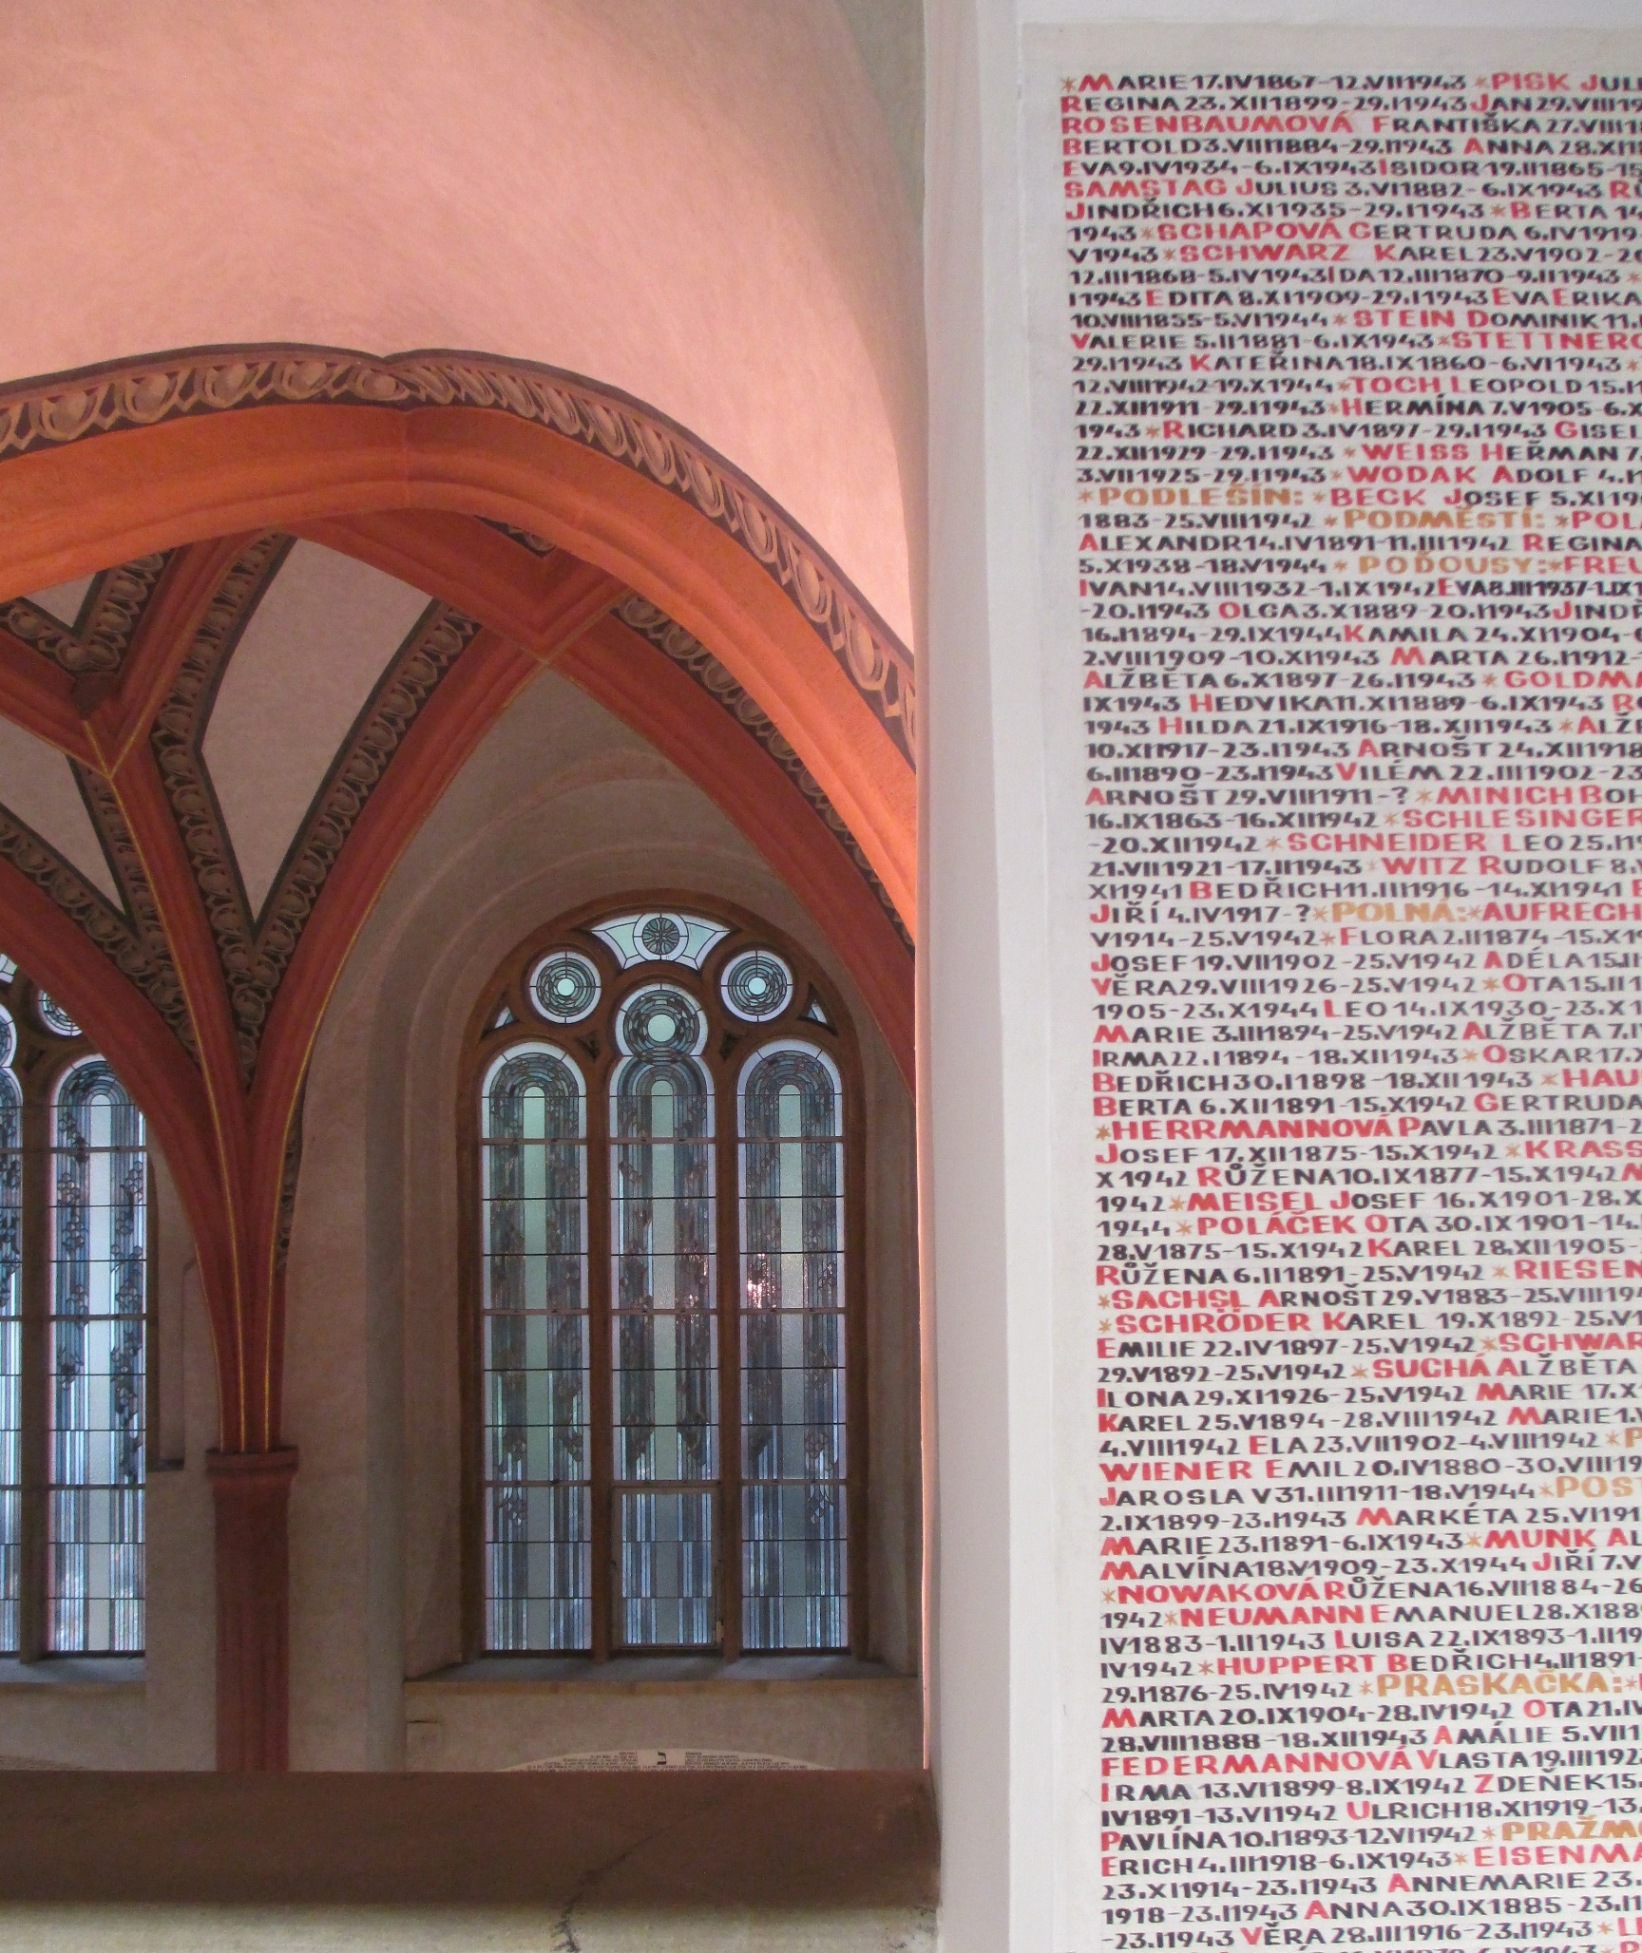 *MARIE 17.IV1867-12.VII1943 *PISK
REGINA 23.XII1899-29.I1943 JAN 29.VIII
ROSENBAUMOVÁ FRANTIŠKA 27.VIII
BERTOLD 3.VIII1884-29.I1943 ANNA 28.
EVA 9.IV1934-6.IX1943 ISIDOR 19.II1865-
SAMSTAG JULIUS 3.VI1882-6.IX1943
JINDŘICH 6.XI1935-29.I1943 *BERTA
1943 *SCHAPOVÁ GERTRUDA 6.IV1919
V1943 *SCHWARZ KAREL 23.V1902-
12.III1868-5.IV1943 IDA 12.III1870-9.II1943 *
I1943 EDITA 8.XI1909-29.I1943 EVA ERIKA
10.VIII1855-5.VI1944 *STEIN DOMINIK
VALERIE 5.II1881-6.IX1943 *
29.I1943 KATEŘINA 18.IX1860-6.VI1943 *
12.VIII1942-19.X1944 *TOCH LEOPOLD
22.XII1911-29.I1943 *HERMÍNA 7.V1905-
1943 *RICHARD 3.IV1897-29.I1943
22.XII1929-29.I1943 *WEISS HEŘMAN
3.VII1925-29.I1943 *WODAK ADOLF
*PODLEŠÍN: *BECK JOSEF
1883-25.VIII1942 *PODMĚSTÍ:
ALEXANDR 14.IV1891-11.III1942 REGINA
5.X1938-18.V1944 *POĎOUSY:
IVAN 14.VIII1932-1.IX1942 EVA 8.III1937-1.IX
-20.I1943 OLGA 3.X1889-20.I1943
16.I1894-29.IX1944 KAMILA 24.XI1904-
2.VIII1909-10.XI1943 MARTA 26.I1912-
ALŽBĚTA 6.X1897-26.I1943 *
IX1943 HEDVIKA 11.XI1889-6.IX1943
1943 HILDA 21.IX1916-18.XII1943 *
10.XI1917-23.I1943 ARNOŠT 24.XII1918
6.II1890-23.I1943 VILÉM 22.III1902-
ARNOŠT 29.VIII1911-? *MINICH
16.IX1863-16.XII1942 *SCHLESINGER
-20.XII1942 *SCHNEIDER LEO
21.VII1921-17.II1943 *WITZ RUDOLF
XI1941 BEDŘICH 11.III1916-14.XI1941
JIŘÍ 4.IV1917-? *POLNÁ:
V1914-25.V1942 *FLORA 2.II1874-
JOSEF 19.VII1902-25.V1942 ADÉLA
VĚRA 29.VIII1926-25.V1942 *OTA
1905-23.X1944 LEO 14.IX1930-
MARIE 3.III1894-25.V1942 ALŽBĚTA
IRMA 22.I1894-18.XII1943 *OSKAR
BEDŘICH 30.I1898-18.XII1943 *
BERTA 6.XII1891-15.X1942 GERTRUDA
*HERRMANNOVÁ PAVLA 3.III1871-
JOSEF 17.XII1875-15.X1942 *
X1942 RŮŽENA 10.IX1877-15.X1942
1942 *MEISEL JOSEF 16.X1901-28.X
1944 *POLÁČEK OTA 30.IX1901-14.
28.V1875-15.X1942 KAREL 28.XII1905-
RŮŽENA 6.II1891-25.V1942 *
*SACHSL ARNOŠT 29.V1883-25.VIII
*SCHRÖDER KAREL 19.X1892-25.V
EMILIE 22.IV1897-25.V1942 *
29.V1892-25.V1942 *SUCHÁ ALŽBĚTA
ILONA 29.XI1926-25.V1942 MARIE 17.
KAREL 25.V1894-28.VIII1942 MARIE
4.VIII1942 ELA 23.VII1902-4.VIII1942 *
WIENER EMIL 20.IV1880-30.VIII
JAROSLAV 31.III1911-18.V1944 *
2.IX1899-23.I1943 MARKÉTA 25.VI
MARIE 23.I1891-6.IX1943 *MUNK
MALVÍNA 18.V1909-23.X1944 JIŘÍ
*NOWAKOVÁ RŮŽENA 16.VII1884-
1942 *NEUMANN EMANUEL 28.X
IV1883-1.II1943 LUISA 22.IX1893-1.II
IV1942 *HUPPERT BEDŘICH 4.II1891-
29.I1876-25.IV1942 *PRASKAČKA:
MARTA 20.IX1904-28.IV1942 OTA
28.VIII1888-18.XII1943 AMÁLIE 5.
FEDERMANNOVÁ VLASTA 19.III
IRMA 13.VI1899-8.IX1942 ZDEŇEK
IV1891-13.VI1942 ULRICH 18.XI1919-
PAVLÍNA 10.I1893-12.VI1942 *
ERICH 4.III1918-6.IX1943 *
23.XI1914-23.I1943 ANNEMARIE
1918-23.I1943 ANNA 30.IX1885-
-23.I1943 VĚRA 28.III1916-23.I1943 *